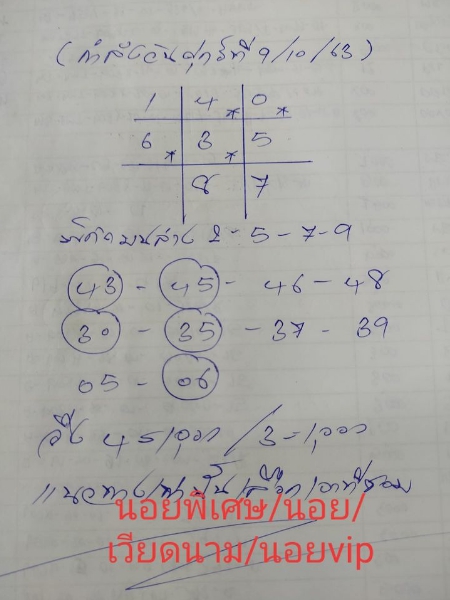 (กำลังวันศุกร์ที่ 9/10/63)
1 4* 0*
6* 3* 5
8 7
พิกัดบนล่าง 2-5-7-9
43 - 45 - 46 - 48
30 - 35 - 37 - 39
05 - 06
แนวทางเท่านั้น
นอยพิเศษ/นอย/
เวียดนาม/นอยvip